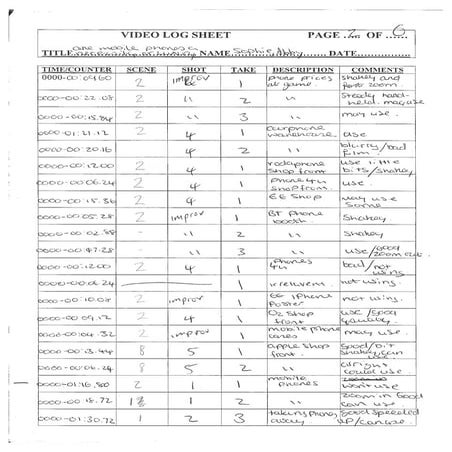 VIDEO LOG SHEET PAGE 2 OF 6
TITLE are mobile phones a NAME Sophie DATE
TIME/COUNTER SCENE SHOT TAKE DESCRIPTION COMMENTS
0000-00:09.60 2 improv 1 phone prices at game. shakey and fast zoom.
0000-00:22.08 2 " 2 " steady hand-held. may use
0000-00:15.84 " 3 " may use.
0000-01:21.12 2 4 1 carphone warehouse use
0000-00:20.16 4 2 " blurry/bad film
0000-00:12.00 2 4 1 vodaphone shop front use little bits/shakey
0000-00:06.24 2 4 1 phone 4u shop front. use.
0000-00:15.36 2 4 1 EE Shop may use some
0000-00:05.28 2 improv 1 BT phone booth. Shakey
0000-00:02.88 " 2 " Shakey
0000-00:47.28 " 3 " use/good zoom out.
0000-00:12.00 2 4 1 phones 4u bad/not using.
0000-00:06.24 1 irrelevent not using.
0000-00:10.08 2 improv 1 EE iPhone Poster not using.
0000-00:09.12 2 4 1 O2 Shop front use/good quality.
0000-00:04.32 2 improv 1 mobile phone cases may use.
0000-00:13.44 8 5 1 apple shop front. good/bit shakey can use
0000-00:06.24 8 5 2 " alright could use
0000-01:16.80 2 1 1 mobile phones won't use
0000-00:18.72 1 2 " zoom in Good can use
0000-01:30.72 1 2 3 taking phones away good speeded up/can use.